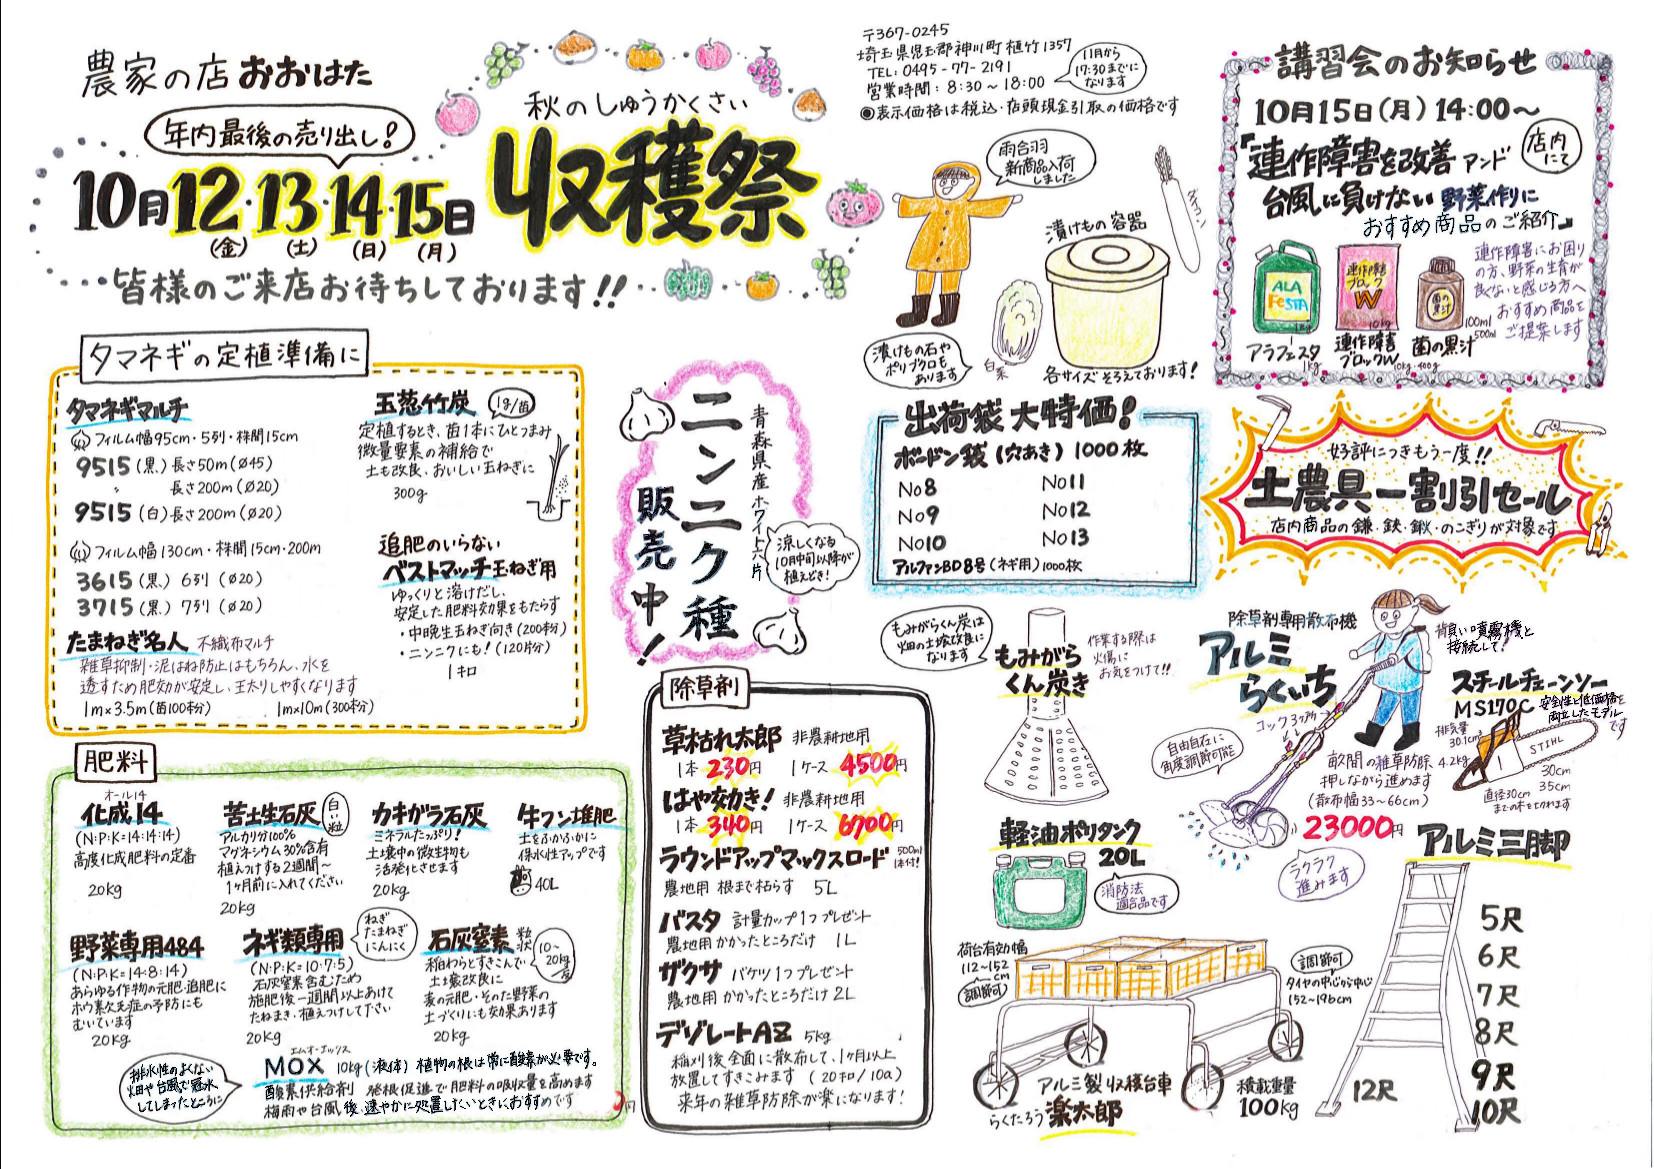 農家の店 おおはた
年内最後の売り出し!
10月12・13・14・15日
(金) (土) (日) (月)
秋のしゅうかくさい
収穫祭
皆様のご来店お待ちしております!!
〒367-0245
埼玉県児玉郡神川町植竹1357
TEL: 0495-77-2191
営業時間: 8:30～18:00
11月から
17:30までに
なります
●表示価格は税込・店頭現金引取の価格です
雨合羽
新商品入荷
しました
ダイコン
漬けもの容器
白菜
漬けもの石や
ポリブクロも
あります
各サイズそろえております!
講習会のお知らせ
10月15日(月) 14:00～
店内
にて
『連作障害を改善 アンド
台風に負けない 野菜作りに
おすすめ商品のご紹介』
ALA
FeSTA
1kg
アラフェスタ
1kg
連作障害
ブロック
W
10kg
連作障害
ブロックW
10kg・400g
菌の
黒汁
菌の黒汁
100ml
500ml
連作障害にお困り
の方、野菜の生育が
良くないと感じる方へ
おすすめ商品を
ご提案します
タマネギの定植準備に
タマネギマルチ
フィルム幅95cm・5列・株間15cm
9515(黒) 長さ50m(Ø45)
長さ200m(Ø20)
9515(白) 長さ200m(Ø20)
フィルム幅130cm・株間15cm・200m
3615(黒) 6列 (Ø20)
3715(黒) 7列 (Ø20)
たまねぎ名人 不織布マルチ
雑草抑制・泥はね防止はもちろん、水を
透すため肥効が安定し、玉太りしやすくなります
1m×3.5m(苗100本分) 1m×10m(300本分)
玉葱竹炭 1g/苗
定植するとき、苗1本にひとつまみ
微量要素の補給で
土も改良、おいしい玉ねぎに
300g
追肥のいらない
ベストマッチ玉ねぎ用
ゆっくりと溶けだし、
安定した肥料効果をもたらす
・中晩生玉ねぎ向き(200本分)
・ニンニクにも!(120片分)
1キロ
青森県産ホワイト六片
ニンニク種
販売中!
涼しくなる
10月中旬以降が
植えどき!
出荷袋 大特価!
ボードン袋(穴あき) 1000枚
No8 No11
No9 No12
No10 No13
アルファンBD8号(ネギ用)1000枚
好評につきもう一度!!
土農具一割引セール
店内商品の鎌・鋏・鍬・のこぎりが対象です
肥料
オール14
化成14
(N:P:K=14:14:14)
高度化成肥料の定番
20kg
苦土生石灰 白い粒
アルカリ分100%
マグネシウム30%含有
植えつけする2週間～
1ヶ月前に入れてください
20kg
カキガラ石灰
ミネラルたっぷり!
土壌中の微生物も
活発化させます
20kg
牛フン堆肥
土をふかふかに
保水性アップです
40L
野菜専用484
(N:P:K=14:8:14)
あらゆる作物の元肥・追肥に
ホウ素欠乏症の予防にも
むいています
20kg
ネギ類専用
ねぎ
たまねぎ
にんにく
(N:P:K=10:7:5)
石灰窒素含むため
施肥後一週間以上あけて
たねまき・植えつけして下さい
20kg
石灰窒素 粒状
10～
20kg/反
稲わらとすきこんで
土壌改良に
麦の元肥・そのた野菜の
土づくりにも効果あります
20kg
排水性のよくない
畑や台風で冠水
してしまったところに
エムオーエックス
MOX 10kg(液体) 植物の根は常に酸素が必要です。
酸素供給剤 発根促進で肥料の吸収量を高めます
梅雨や台風後、速やかに処置したいときにおすすめです
除草剤
草枯れ太郎 非農耕地用
1本 230円 1ケース 4500円
はや効き! 非農耕地用
1本 340円 1ケース 6700円
ラウンドアップマックスロード 500ml
1本付!
農地用 根まで枯らす 5L
バスタ 計量カップ1つプレゼント
農地用 かかったところだけ 1L
ザクサ バケツ1つプレゼント
農地用 かかったところだけ 2L
デゾレートAZ 5kg
稲刈り後全面に散布して、1ヶ月以上
放置してすきこみます (20キロ/10a)
来年の雑草防除が楽になります!
もみがらくん炭は
畑の土壌改良に
なります
もみがら
くん炭き
作業する際は
火傷に
お気をつけて!!
軽油ポリタンク
20L
消防法
適合品です
除草剤専用散布機
アルミ
らくいち
背負い噴霧機と
接続して!
コック3ヶ所
自由自在に
角度調節可能
畝間の雑草防除
押しながら進めます
(散布幅33～66cm)
23000円
ラクラク
進みます
スチールチェーンソー
MS170C 安全性と低価格を
両立したモデル
です
排気量
30.1cm³
4.2kg
STIHL
30cm
35cm
直径30cm
までの木を切れます
荷台有効幅
112～152
cm
調節可
調節可
タイヤの中心から中心
152～196cm
アルミ製収穫台車
らくたろう 楽太郎
積載重量
100kg
アルミ三脚
5尺
6尺
7尺
8尺
9尺
10尺
12尺